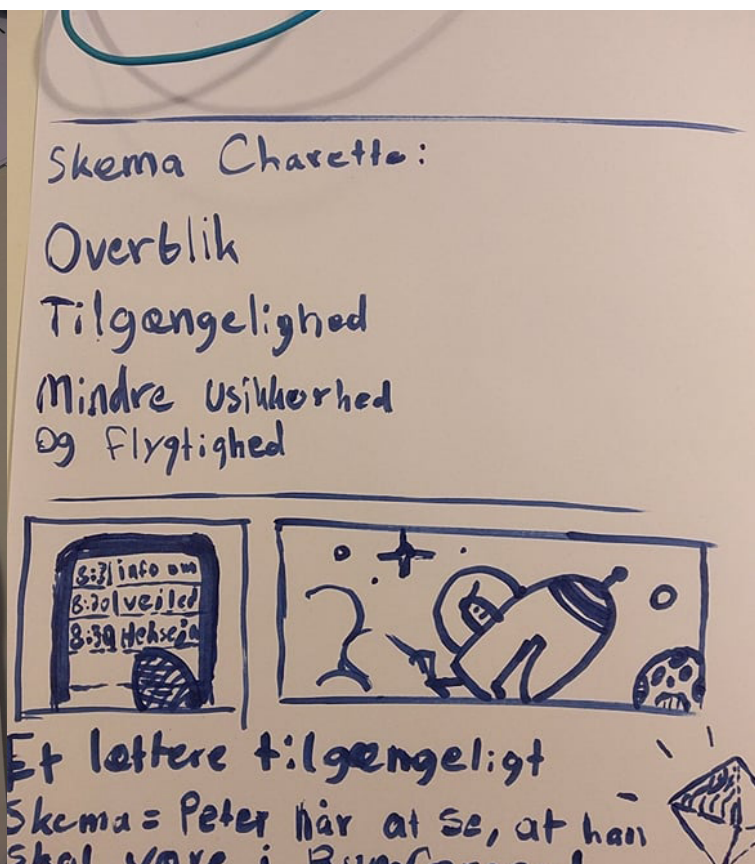 Skema Charette:
Overblik
Tilgængelighed
Mindre usikkerhed
og flygtighed
info om
8:30 veiled
8:30
Et lettere tilgængeligt
Skema = Peter når at se, at han
skal være i